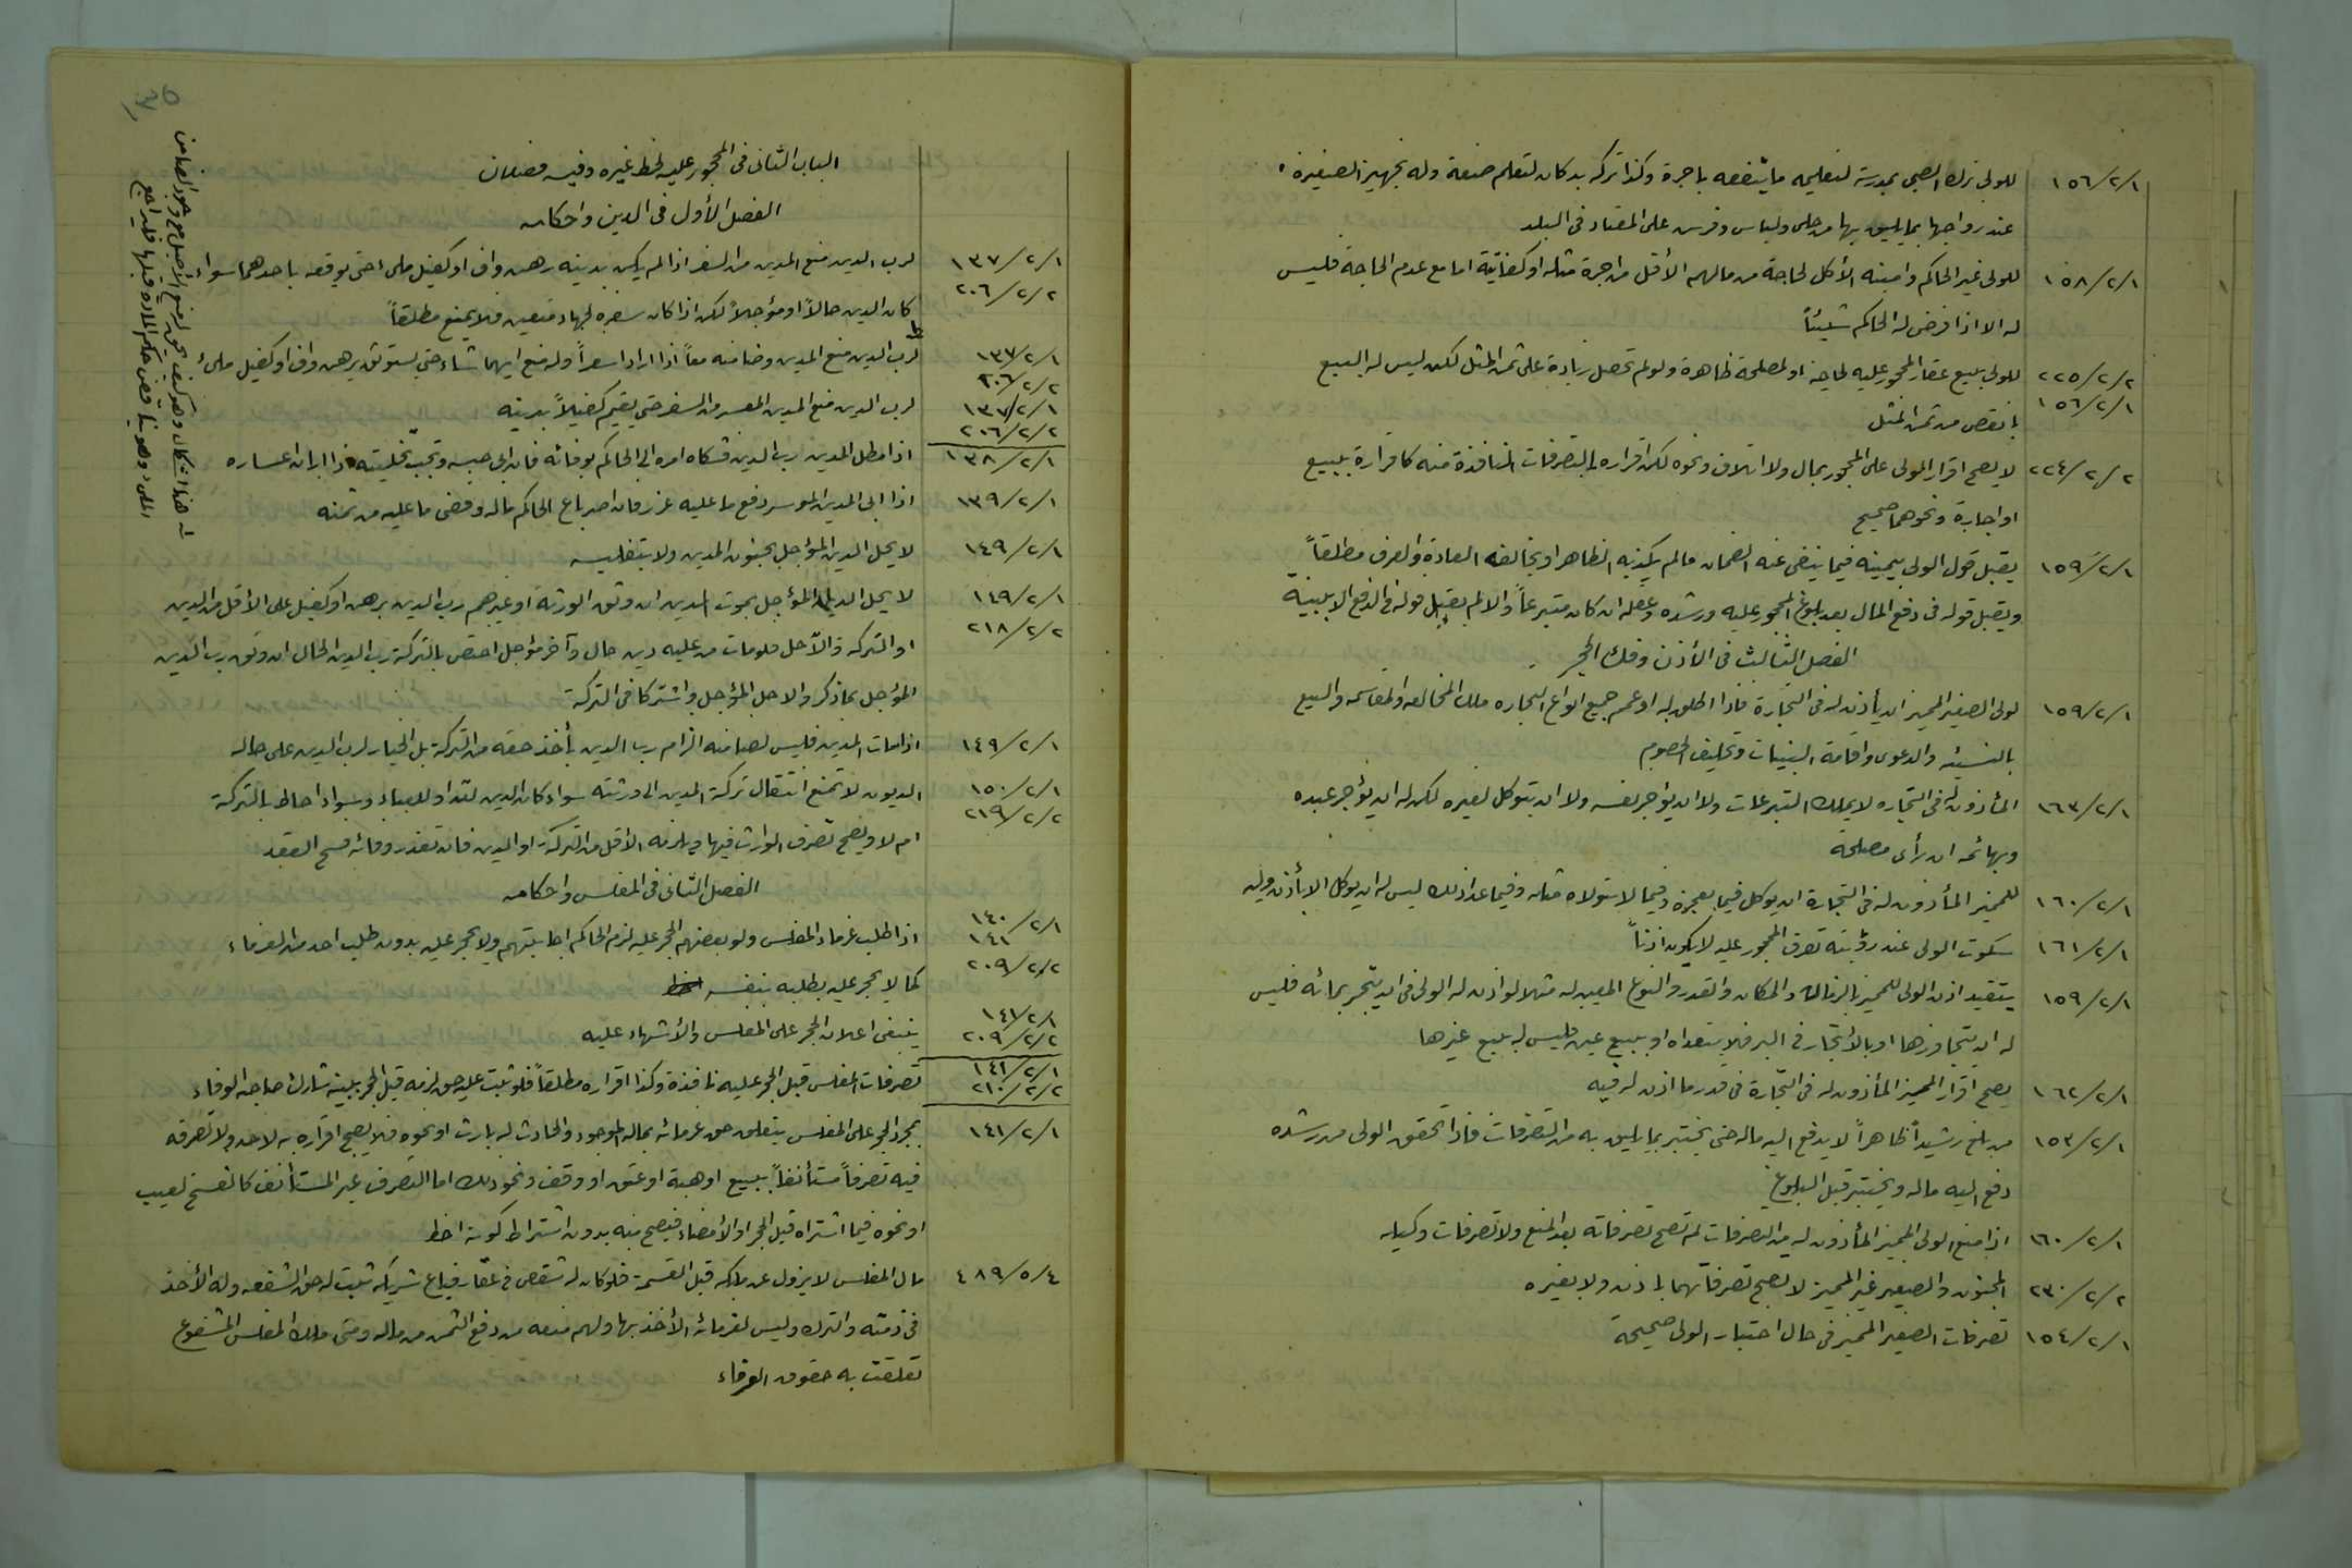 ١٥٦/٢/١ للولي ترك الصبي بمدرسة لتعليمه ما ينفعه باجرة وكذا تركه بدكان لتعلم صنعة وله تجهيز الصغيرة
عند زواجها بما يليق بها من حلى ولباس وفرس على المعتاد في البلد
١٥٨/٢/١ للولى غير الحاكم وامينه الأكل لحاجة من مالهم الأقل من اجرة مثله او كفايته اما مع عدم الحاجة فليس
له الا اذا فرض له الحاكم شيئاً
٢٢٥/٢/٢ للولى بيع عقار المحجور عليه لحاجة او لمصلحة ظاهرة ولو لم تحصل زيادة على ثمن المثل لكن ليس له البيع
١٥٦/٢/١ بانقص من ثمن المثل
٢٢٤/٢/٢ لا يصح اقرار الولى على المحجور بمال ولا اتلاف ونحوه لكن اقراره بالتصرفات النافذة منه كاقراره ببيع
او اجارة ونحوهما صحيح
١٥٩/٢/١ يقبل قول الولى بيمينه فيما ينفى عنه الضمان مالم يكذبه الظاهر او تخالفه العادة والعرف مطلقاً
ويقبل قوله في دفع المال بعد بلوغ المحجور عليه ورشده وعقله ان كان متبرعاً والا لم يقبل قوله في الدفع الا ببينة
الفصل الثالث في الأذن وفك الحجر
١٥٩/٢/١ لولى الصغير المميز ان يأذن له في التجارة فاذا اطلق له او عمم جميع انواع التجاره ملك المخالعه والمقاسمه والبيع
بالنسيئه والدعوى واقامة البينات وتحليف الخصوم
١٦٣/٢/١ المأذون له في التجاره لا يملك التبرعات ولا ان يؤاجر نفسه ولا ان يتوكل لغيره لكن له ان يؤجر عبده
وبهائمه ان رأى مصلحة
١٦٠/٢/١ للمميز المأذون له في التجارة ان يوكل فيما يعجزه وفيما لا يتولاه مثله وفيما عدا ذلك ليس له ان يوكل الا بأذن وليه
١٦١/٢/١ سكوت الولى عند رؤيته تصرف المحجور عليه لا يكون اذناً
١٥٩/٢/١ يتقيد اذن الولى للمميز بالزمان والمكان والقدر والنوع المعين له مثلا لو اذن له الولى في ان يتجر بمائه فليس
له ان يتجاوزها او بالأتجار في البر فلا يتعداه او ببيع عين فليس له بيع غيرها
١٦٢/٢/١ يصح اقرار المميز المأذون له في التجارة في قدر ما اذن له فيه
١٥٣/٢/١ من بلغ رشيداً ظاهراً لا يدفع اليه ماله حتى يختبر بما يليق به من التصرفات فاذا تحقق الولى من رشده
دفع اليه ماله ويختبر قبل البلوغ
١٦٠/٢/١ اذا منع الولى المميز المأذون له من التصرفات لم تصح تصرفاته بعد المنع ولا تصرفات وكيله
٢٣٠/٢/٢ المجنون والصغير غير المميز لا تصح تصرفاتهما باذن ولا بغيره
١٥٤/٢/١ تصرفات الصغير المميز في حال اختبار الولى صحيحة
الباب الثانى في المحجور عليه لحظ غيره وفيه فصلان
الفصل الأول في الدين واحكامه
١٣٧/٢/١ لرب الدين منع المدين من السفر اذا لم يكن بدينه رهن واف او كفيل ملئ حتى يوثقه باحدهما سواء
٢٠٦/٢/٢ كان الدين حالاً او مؤجلاً لكن اذا كان سفره لجهاد متعين فلا يمنع مطلقاً
١٣٧/٢/١ لرب الدين منع المدين وضامنه معاً اذا ارادا سفراً وله منع ايهما شاء حتى يستوثق برهن واف او كفيل ملئ
٢٠٦/٢/٢
١٣٧/٢/١ لرب الدين منع المدين المعسر من السفر حتى يقيم كفيلاً بدينه
٢٠٦/٢/٢
١٣٨/٢/١ اذا مطل المدين رب الدين فشكاه امره الى الحاكم بوفائه فان ابى حبسه وتجب تخليته اذا ابان اعساره
١٣٩/٢/١ اذا ابى المدين الموسر دفع ما عليه عزر فان اصر باع الحاكم ماله وقضى ما عليه من ثمنه
١٤٩/٢/١ لا يحل الدين المؤجل بجنون المدين ولا بتفليسه
١٤٩/٢/١ لا يحل الدين المؤجل بموت المدين ان وثق الورثة او غيرهم رب الدين برهن او كفيل على الأقل من الدين
٢١٨/٢/٢ او التركه والا حل فلو مات من عليه دين حال وآخر مؤجل اختص بالتركة رب الدين الحال ان وثق رب الدين
المؤجل بما ذكر والا حل المؤجل واشتركا في التركة
١٤٩/٢/١ اذا مات المدين فليس لضامنه الزام رب الدين بأخذ حقه من التركة بل الخيار لرب الدين على حاله
١٥٠/٢/١ الديون لا تمنع انتقال تركة المدين الى ورثته سواء كان الدين لله او للعباد وسواء احاط بالتركة
٢١٩/٢/٢ ام لا ويصح تصرف الوارث فيها ويلزمه الأقل من التركة او الدين فان تعذر وفائه فسخ العقد
الفصل الثانى في المفلس واحكامه
١٤٠/٢/١ ١٤١ اذا طلب غرماء المفلس ولو بعضهم الحجر عليه لزم الحاكم اجابتهم ولا يحجر عليه بدون طلب احد من الغرماء
٢٠٩/٢/٢ كما لا يحجر عليه بطلبه بنفسه
١٤١/٢/١ ينبغى اعلان الحجر على المفلس والأشهاد عليه
٢٠٩/٢/٢
١٤١/٢/١ تصرفات المفلس قبل الحجر عليه نافذة وكذا اقراره مطلقاً فلو ثبت عليه حق لزمه قبل الحجر ببينة شارك صاحبه الغرماء
٢١٠/٢/٢
١٤١/٢/١ بمجرد الحجر على المفلس يتعلق حق غرمائه بماله الموجود والحادث له بارث او نحوه فلا يصح اقراره به لاحد ولا تصرفه
فيه تصرفاً مستأنفاً ببيع او هبة او عتق او وقف ونحو ذلك اما التصرف غير المستأنف كالفسخ لعيب
او نحوه فيما اشتراه قبل الحجر او الأمضاء فيصح منه بدون اشتراط كونه احظ
٤٨٩/٥/٤ مال المفلس لا يزول عن ملكه قبل القسمة فلو كان له شقص في عقار فباع شريكه ثبتت له حق الشفعه وله الأخذ
في ذمته والترك وليس لغرمائه الأخذ بها ولهم منعه من دفع الثمن من ماله ومتى ملك المفلس المشفوع
تعلقت به حقوق الغرماء